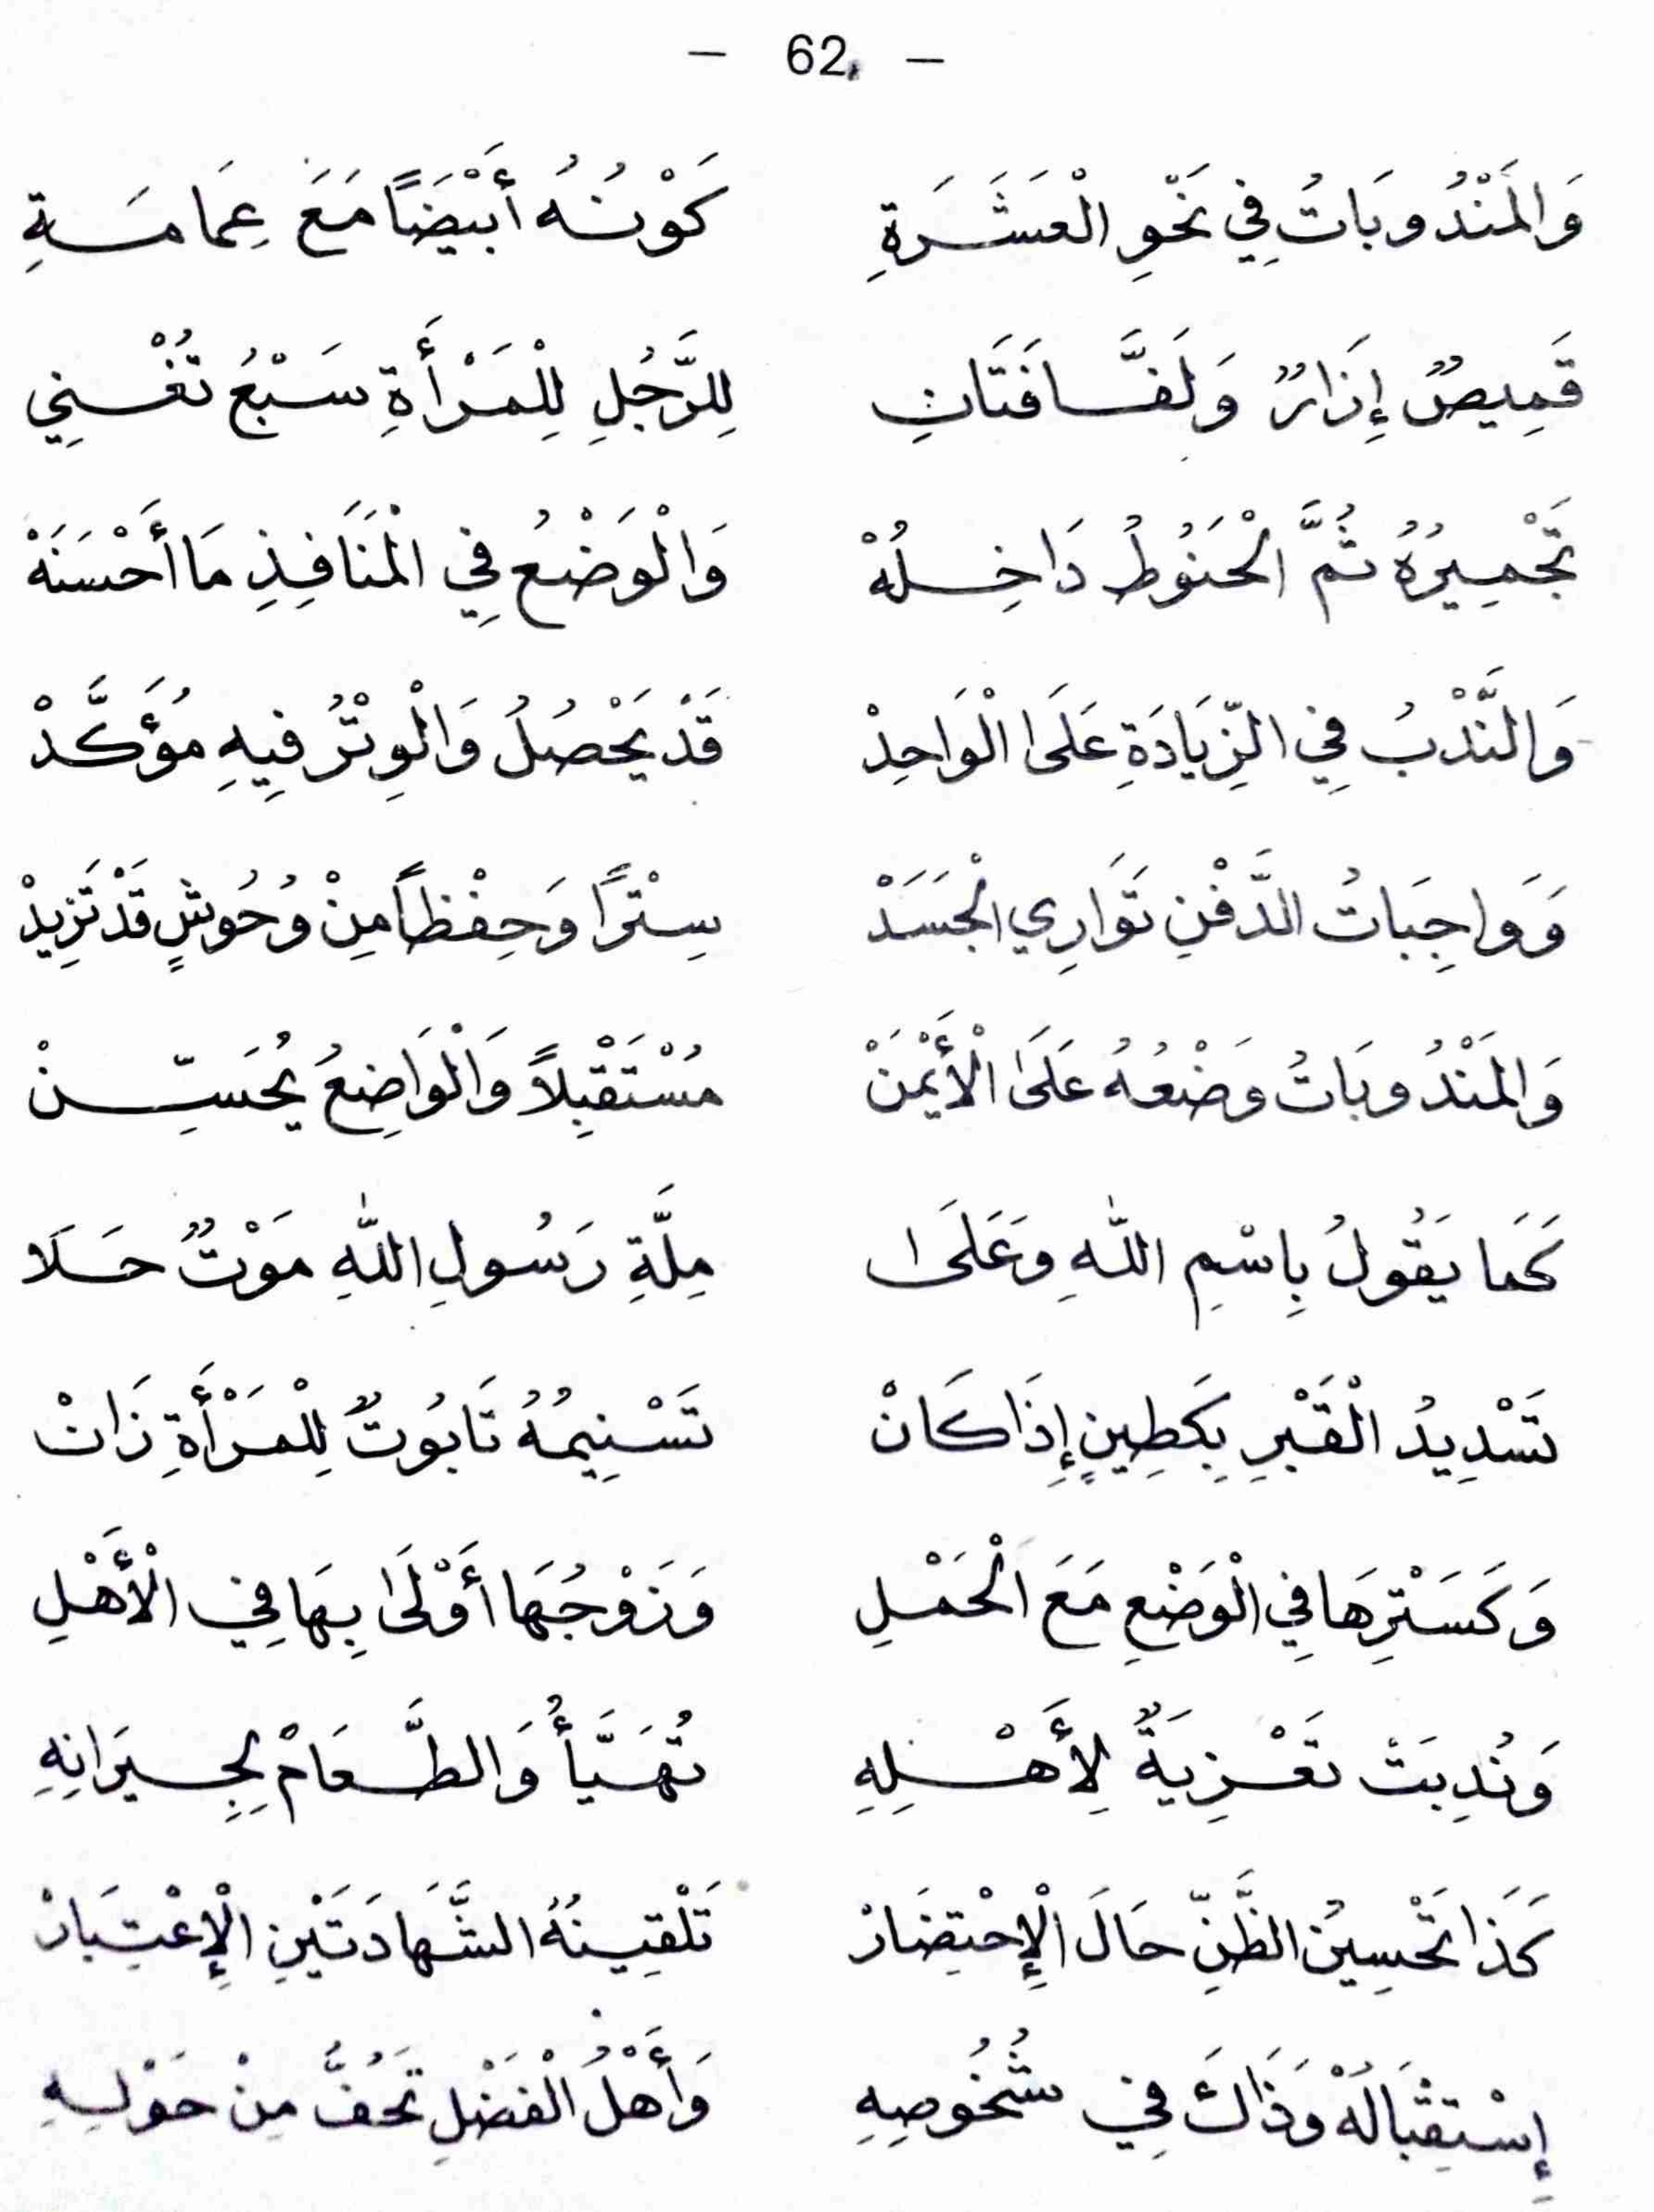 - 62 -
وَالمَنْدُوبَاتُ فِي نَحْوِ الْعَشَرَةِ كَوْنُهُ أَبْيَضًا مَعَ عِمَامَةِ
قَمِيصٌ إِزَارٌ وَلَفَّافَتَانِ لِلرَّجُلِ لِلْمَرْأَةِ سَبْعُ تُغْنِي
تَجْمِيرُهُ ثُمَّ الْحَنُوطُ دَاخِلُهْ وَالْوَضْعُ فِي الْمَنَافِذِ مَا أَحْسَنَهْ
وَالنَّدْبُ فِي الزِّيَادَةِ عَلَى الْوَاحِدْ قَدْ يَحْصُلُ وَالْوِتْرُ فِيهِ مُؤَكَّدْ
وَوَاجِبَاتُ الدَّفْنِ تَوَارِي الْجَسَدْ سِتْرًا وَحِفْظًا مِنْ وُحُوشٍ قَدْ تَزِيدْ
وَالمَنْدُوبَاتُ وَضْعُهُ عَلَى الْأَيْمَنْ مُسْتَقْبِلاً وَالْوَاضِعُ يُحَسِّنْ
كَمَا يَقُولُ بِاسْمِ اللهِ وَعَلَى مِلَّةِ رَسُولِ اللهِ مَوْتٌ حَلَا
تَسْدِيدُ الْقَبْرِ بِكَطِينٍ إِذَا كَانْ تَسْنِيمُهُ تَابُوتٌ لِلْمَرْأَةِ زَانْ
وَكَسَتْرِهَا فِي الْوَضْعِ مَعَ الْحَمْلِ وَزَوْجُهَا أَوْلَى بِهَا فِي الْأَهْلِ
وَنُدِبَتْ تَعْزِيَةٌ لِأَهْلِهِ تُهَيَّأُ وَالطَّعَامْ لِجِيرَانِهِ
كَذَا تَحْسِينُ الظَّنِّ حَالَ الْإِحْتِضَارْ تَلْقِينُهُ الشَّهَادَتَيْنِ الْإِعْتِبَارْ
إِسْتِقْبَالُهْ وَذَاكَ فِي شُخُوصِهِ وَأَهْلُ الْفَضْلِ تَحُفُّ مِنْ حَوْلِهِ